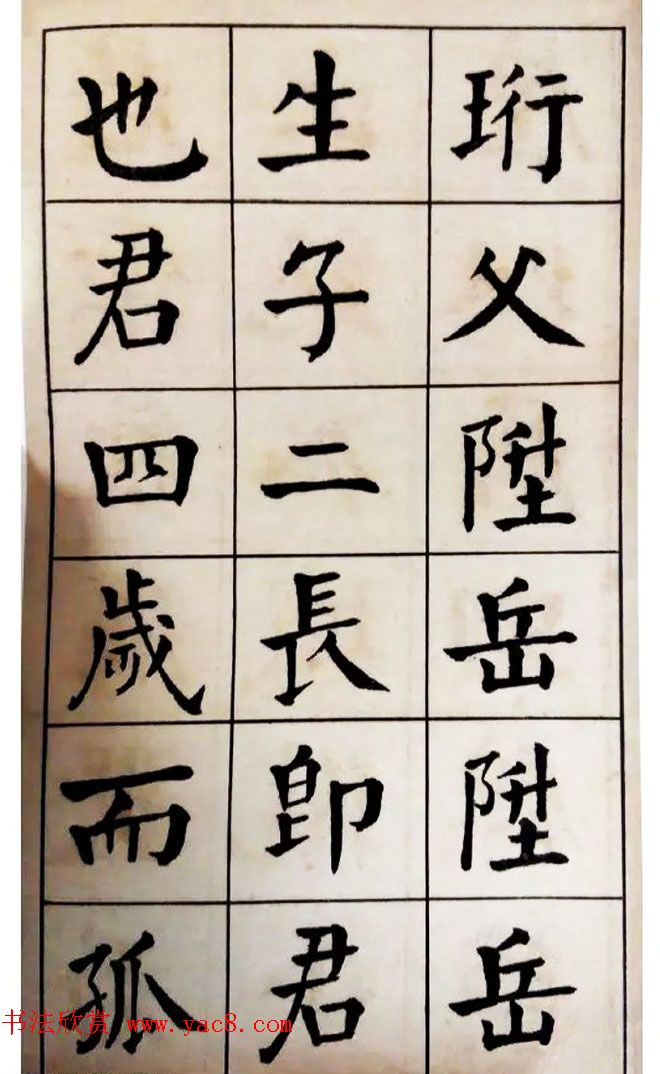 珩父陞岳陞岳
生子二長卽君
也君四歲而孤
书法欣赏 www.yac8.com